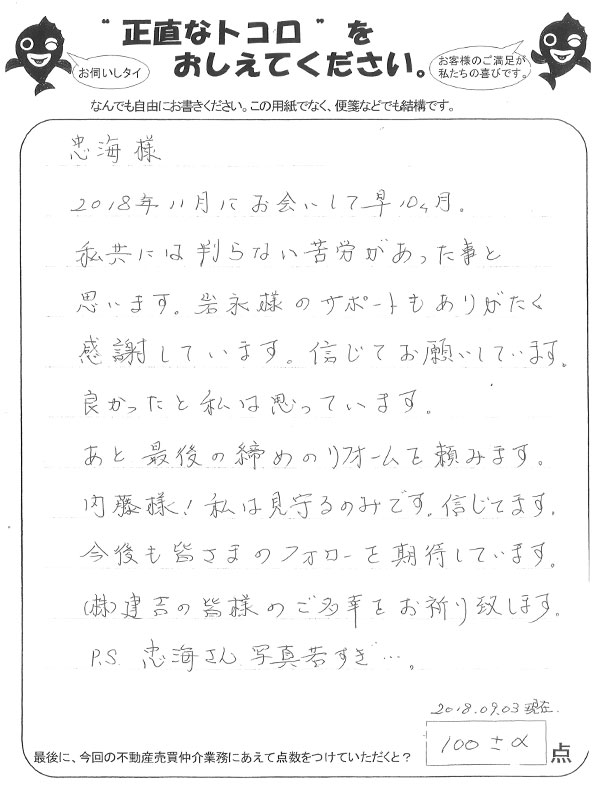 “正直なトコロ”を
おしえてください。
お伺いしタイ
お客様のご満足が
私たちの喜びです。
なんでも自由にお書きください。この用紙でなく、便箋などでも結構です。
忠海様
2018年11月にお会いして早10ヶ月。
私共には判らない苦労があった事と
思います。岩永様のサポートもありがたく
感謝しています。信じてお願いしています。
良かったと私は思っています。
あと最後の締めのリフォームを頼みます。
内藤様!私は見守るのみです。信じてます。
今後も皆さまのフォローを期待しています。
(株)建吉の皆様のご多幸をお祈り致します。
P.S 忠海さん写真若すぎ…。
2018.09.03 現在.
最後に、今回の不動産売買仲介業務にあえて点数をつけていただくと?
100±α
点